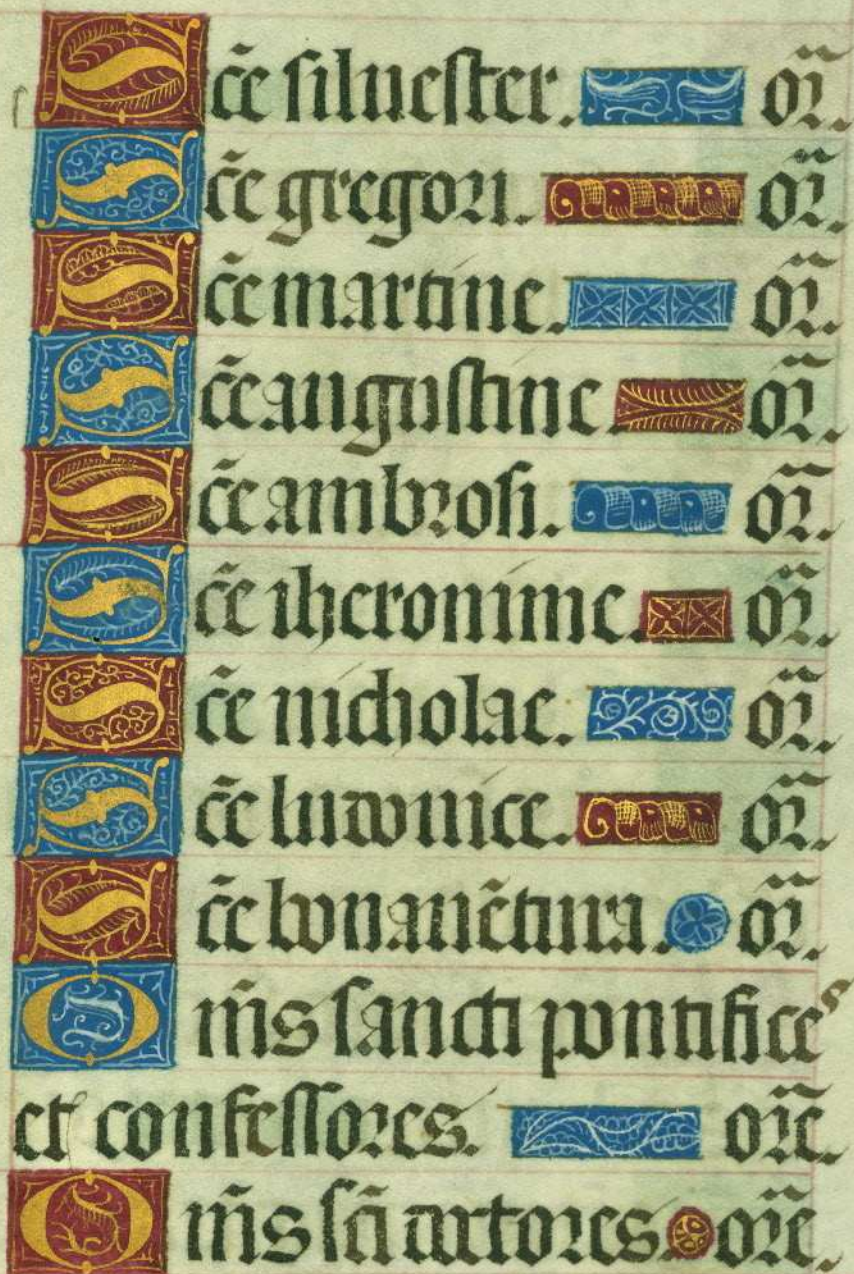 Sc̄e siluester. or̄.
Sc̄e gregori. or̄.
Sc̄e martine. or̄.
Sc̄e augustine. or̄.
Sc̄e ambrosi. or̄.
Sc̄e iheronime. or̄.
Sc̄e nicholae. or̄.
Sc̄e ludouice. or̄.
Sc̄e bonauēctura. or̄.
Om̄s sancti pontifices
et confessores. or̄e.
Om̄s sc̄i doctores. or̄e.